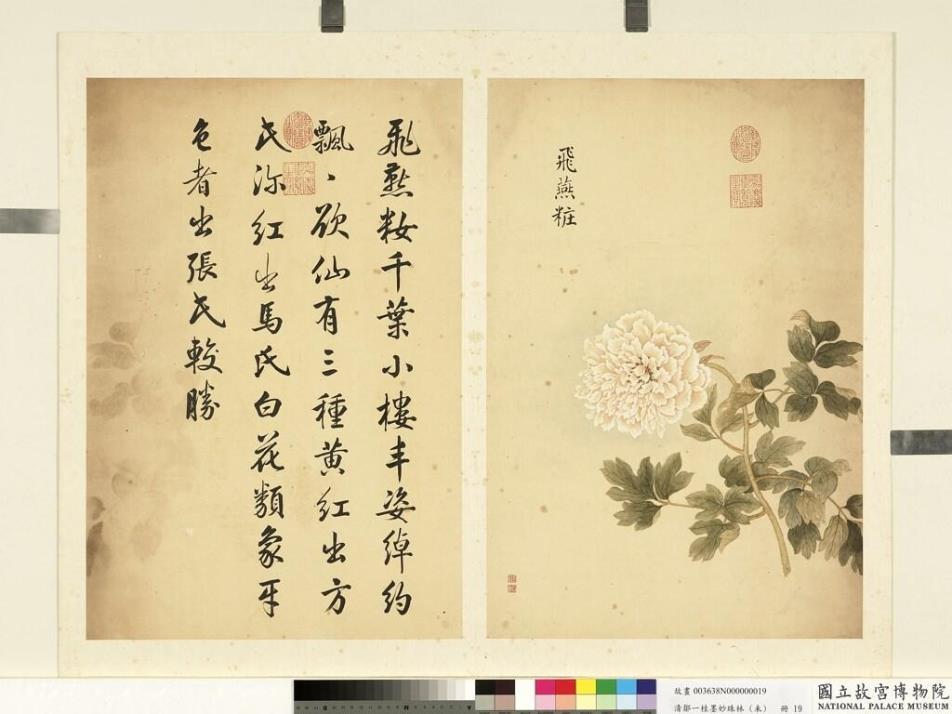 飛燕粧
飛燕籹千葉小樓丰姿綽約
飄丶欲仙有三種黃紅出方
氏深紅出馬氏白花類象牙
色者出張氏較勝
故畫 003638N000000019
清鄒一桂墨妙珠林（未） 冊 19
國立故宮博物院
NATIONAL PALACE MUSEUM